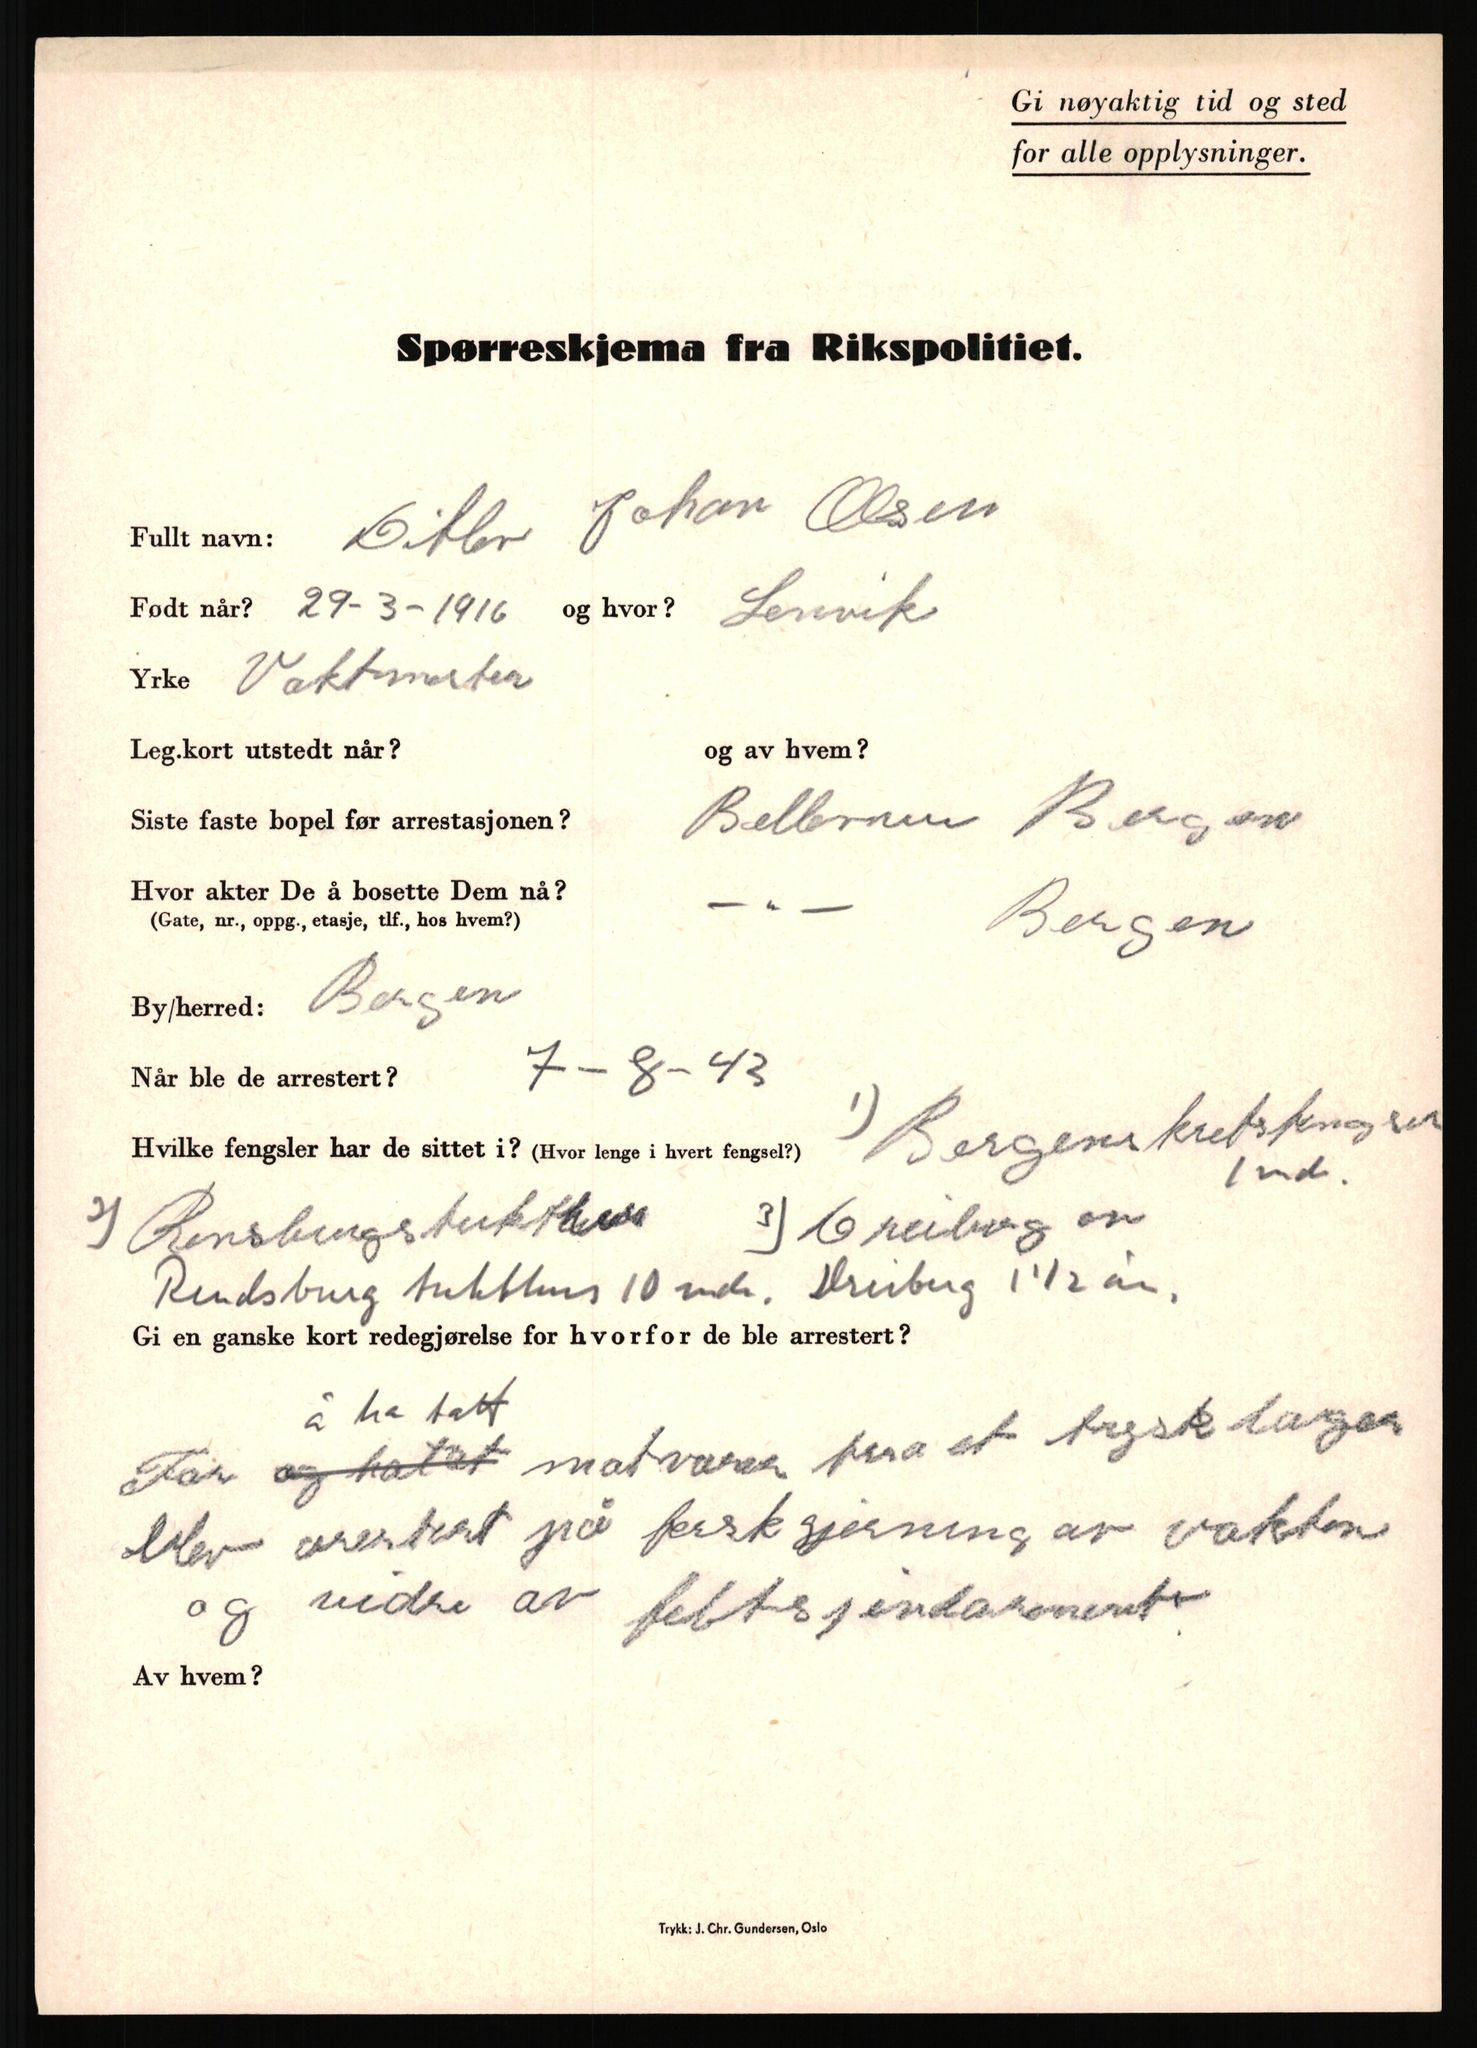 Gi nøyaktig tid og sted
for alle opplysninger.
Spørreskjema fra Rikspolitiet.
Fullt navn: Ditlev Johan Olsen
Født når? 29-3-1916 og hvor? Lenvik
Yrke Vaktmester
Leg.kort utstedt når? og av hvem?
Siste faste bopel før arrestasjonen? Bergen
Hvor akter De å bosette Dem nå? — " — Bergen
(Gate, nr., oppg., etasje, tlf., hos hvem?)
By/herred: Bergen
Når ble de arrestert? 7-8-43
Hvilke fengsler har de sittet i? (Hvor lenge i hvert fengsel?) 1) Bergens kretsfengsel
1 md.
2) Rensburgstukthus 3)
Rendsburg tukthus 10 mdr. Dreiberg 1 1/2 år.
Gi en ganske kort redegjørelse for hvorfor de ble arrestert?
å ha tatt
For og hatat matvarer fra et tysk lager
Blev arestert på fersk gjerning av vakten
og vidre av feltsjendarmeriet.
Av hvem?
Trykk: J. Chr. Gundersen, Oslo